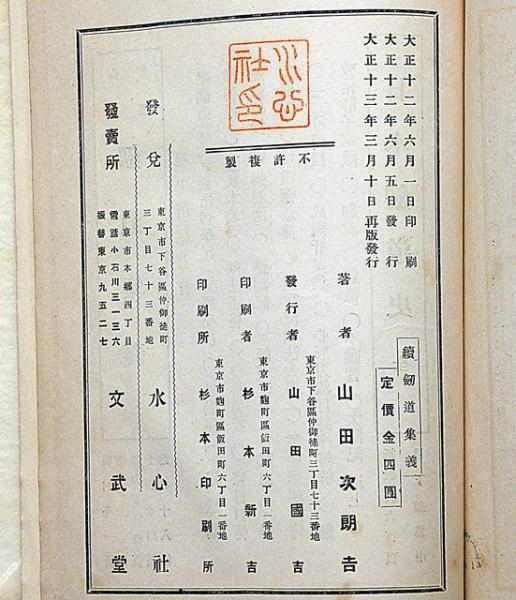 大正十二年六月一日印刷
大正十二年六月五日發行
大正十三年三月十日再版發行
續劒道集義
定價金四圓
不許複製
著者 山田次朗吉
東京市下谷區仲御徒町三丁目七十三番地
發行者 山田國吉
東京市麴町區飯田町六丁目一番地
印刷者 杉本新吉
東京市麴町區飯田町六丁目一番地
印刷所 杉本印刷所
東京市下谷區仲御徒町
三丁目七十三番地
發兌 水心社
東京市本鄕四丁目
電話小石川三一三六
振替東京九五二七
發賣所 文武堂
水心
社印